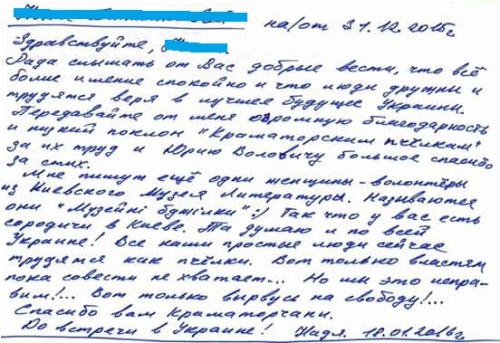 на/от 31.12.2015г
Здравствуйте,
Рада слышать от Вас добрые вести, что всё
более и менее спокойно и что люди дружны и
трудятся веря в лучшее будущее Украины.
Передавайте от меня огромную благодарность
и низкий поклон "Краматорским пчёлкам"
за их труд и Юрию Воловичу большое спасибо
за стих.
Мне пишут ещё одни женщины-волонтёры
из Киевского Музея Литературы. Называются
они "Музейні бджілки":) Так что у вас есть
сородичи в Киеве. Та думаю и по всей
Украине! Все наши простые люди сейчас
трудятся как пчёлки. Вот только властям
пока совести не хватает... Но мы это испра-
вим!... Вот только вырвусь на свободу!...
Спасибо вам Краматорчани.
До встречи в Украине! Надя. 18.01.2016г